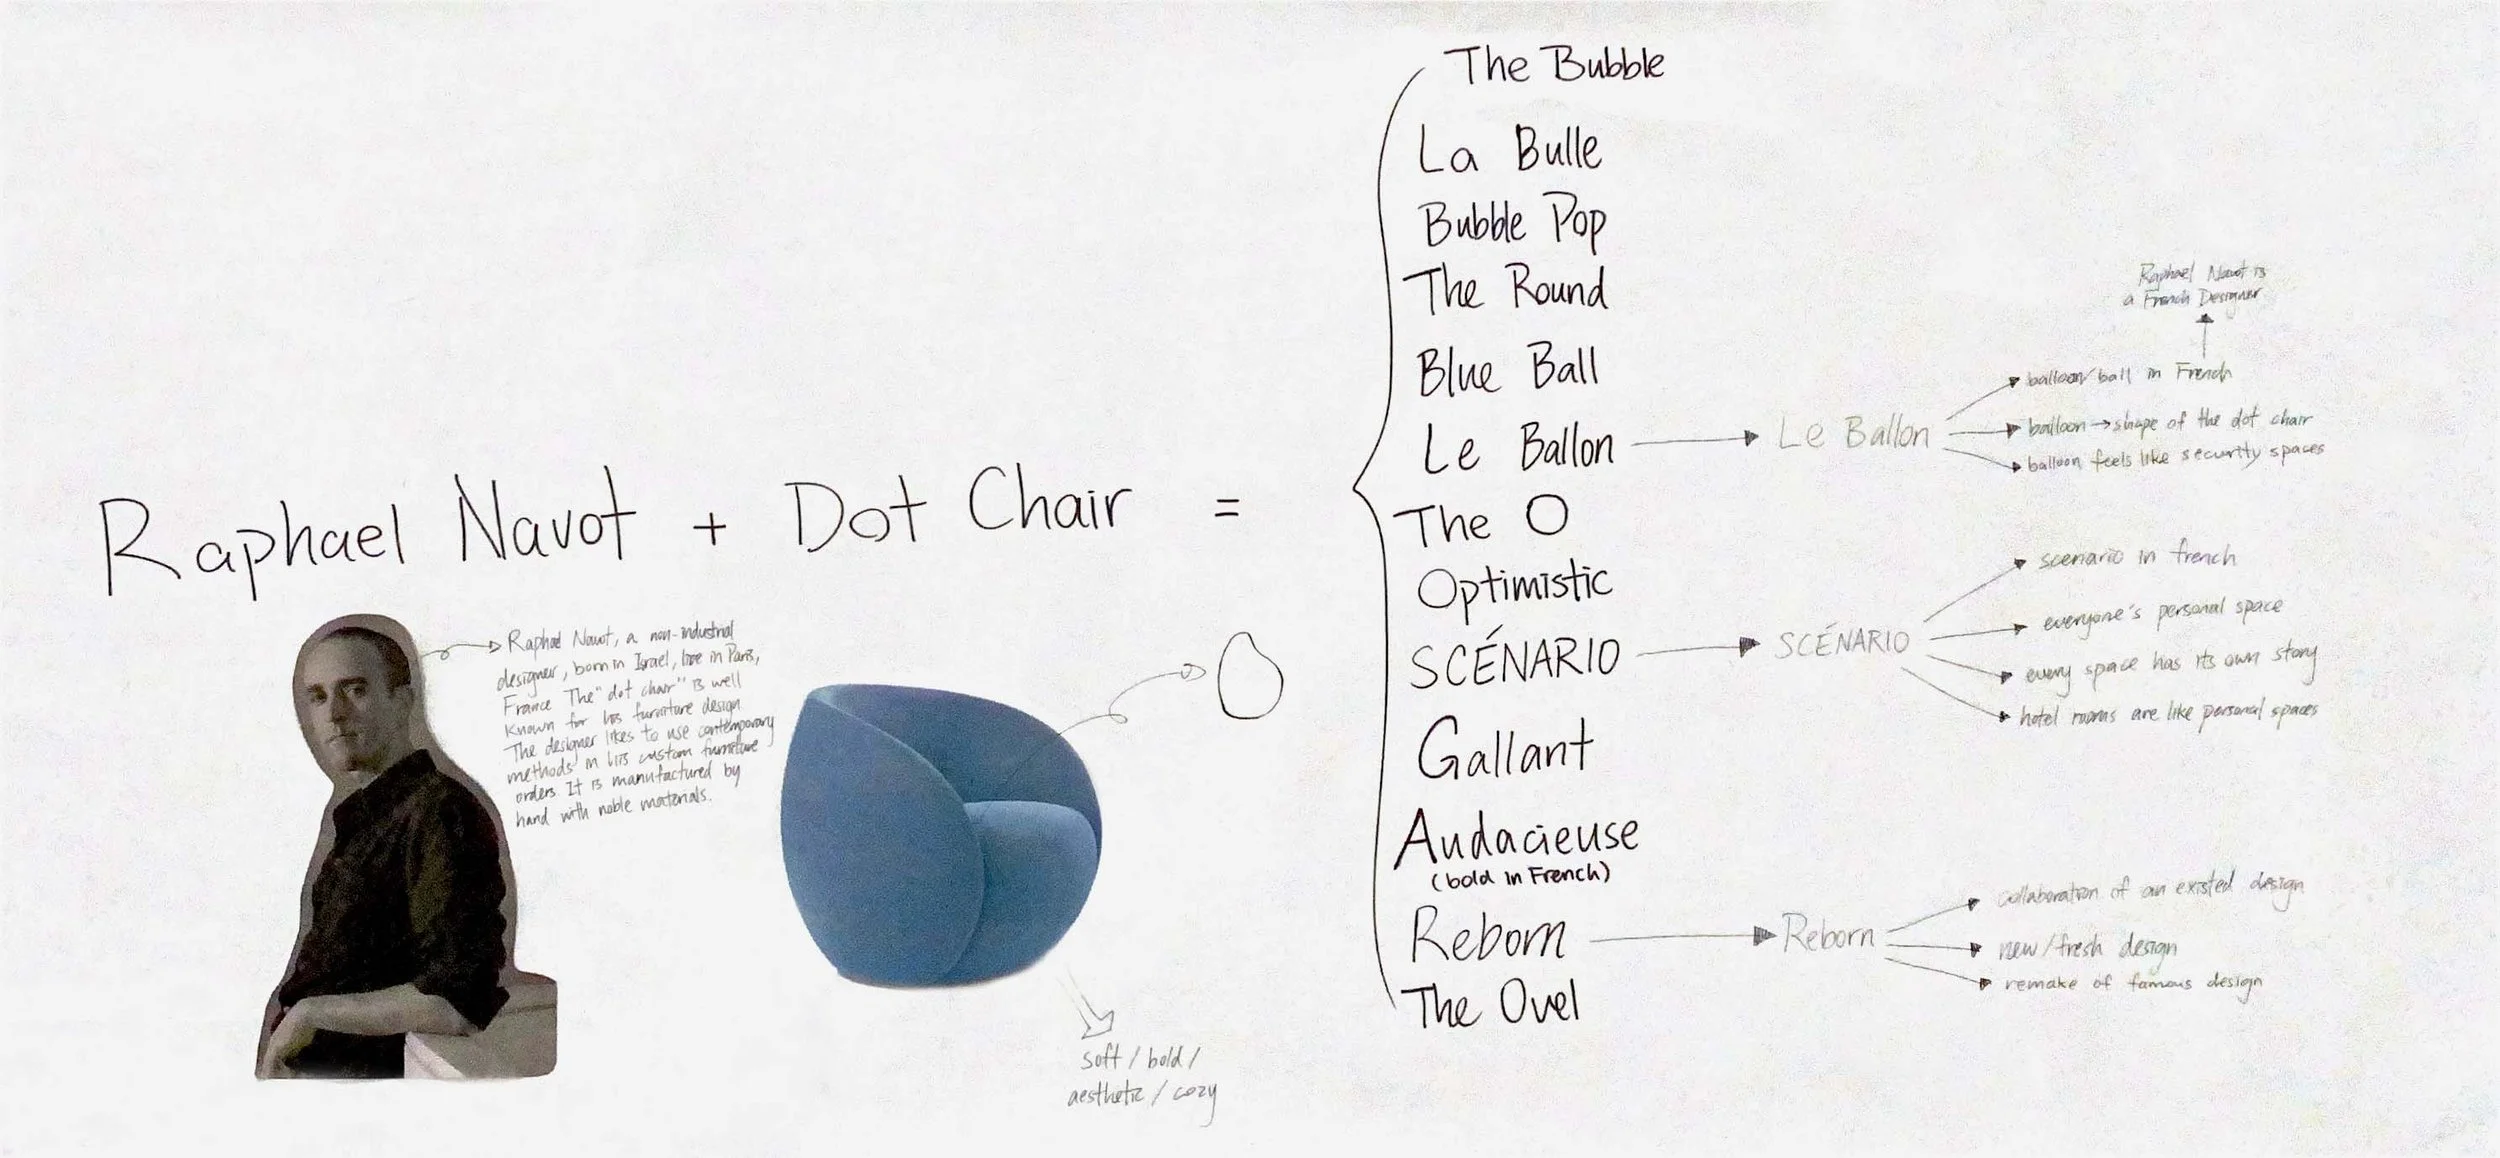 Raphael Navot + Dot Chair =
Raphael Navot, a non-industrial
designer, born in Israel, live in Paris,
France The "dot chair" is well
known for his furniture design
The designer likes to use contemporary
methods in his custom furniture
orders. It is manufactured by
hand with noble materials.
soft / bold /
aesthetic / cozy
The Bubble
La Bulle
Bubble Pop
The Round
Blue Ball
Le Ballon
The O
Optimistic
SCÉNARIO
Gallant
Audacieuse
(bold in French)
Reborn
The Ovel
Le Ballon
Raphael Navot is
a French Designer
balloon/ball in French
balloon → shape of the dot chair
balloon feels like security spaces
SCÉNARIO
scenario in french
everyone's personal space
every space has its own story
hotel rooms are like personal spaces
Reborn
collaboration of an existed design
new/fresh design
remake of famous design